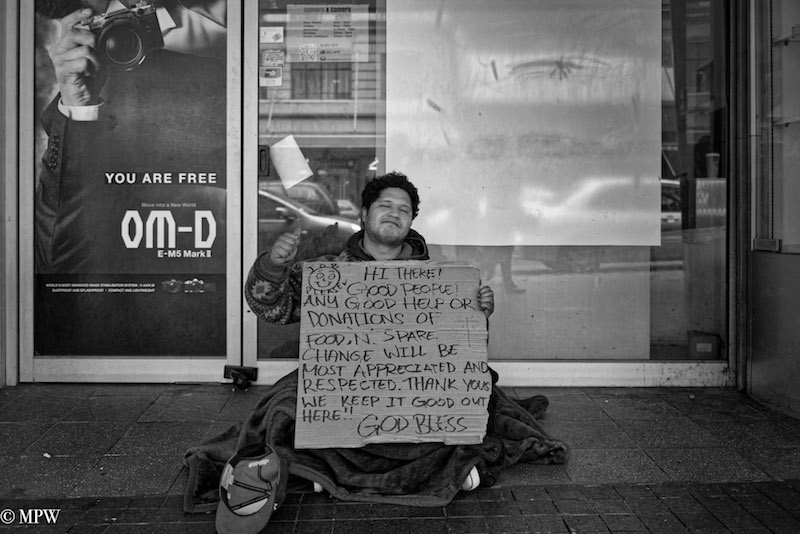 YOU ARE FREE
Move into a New World
OM-D
E-M5 Mark II
HI THERE!
GOOD PEOPLE!
ANY GOOD HELP OR
DONATIONS OF
FOOD, N. SPARE
CHANGE WILL BE
MOST APPRECIATED AND
RESPECTED. THANK YOUS
WE KEEP IT GOOD OUT
HERE!!
GOD BLESS
© MPW